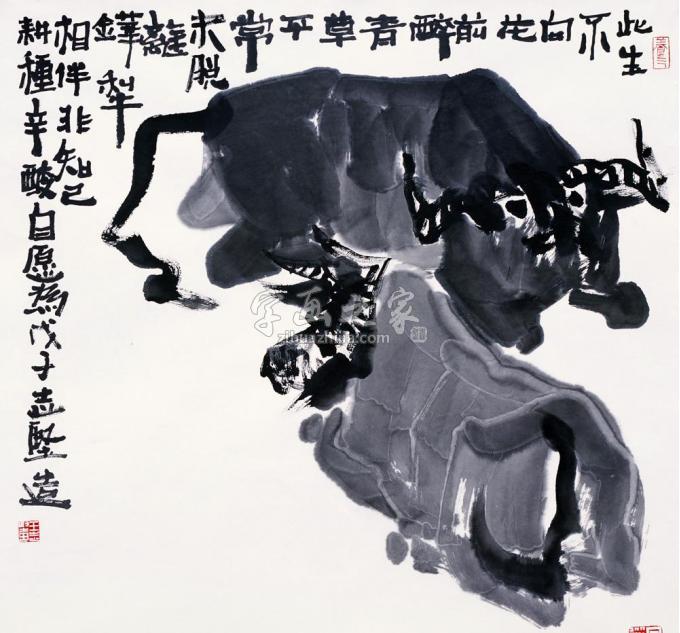 此生
不
向
花
前
醉
青
草
平
常
未脱
離
鏵犁
相伴非知己
耕種辛酸自愿為戊子志堅造
字画之家
zihuazhijia.com